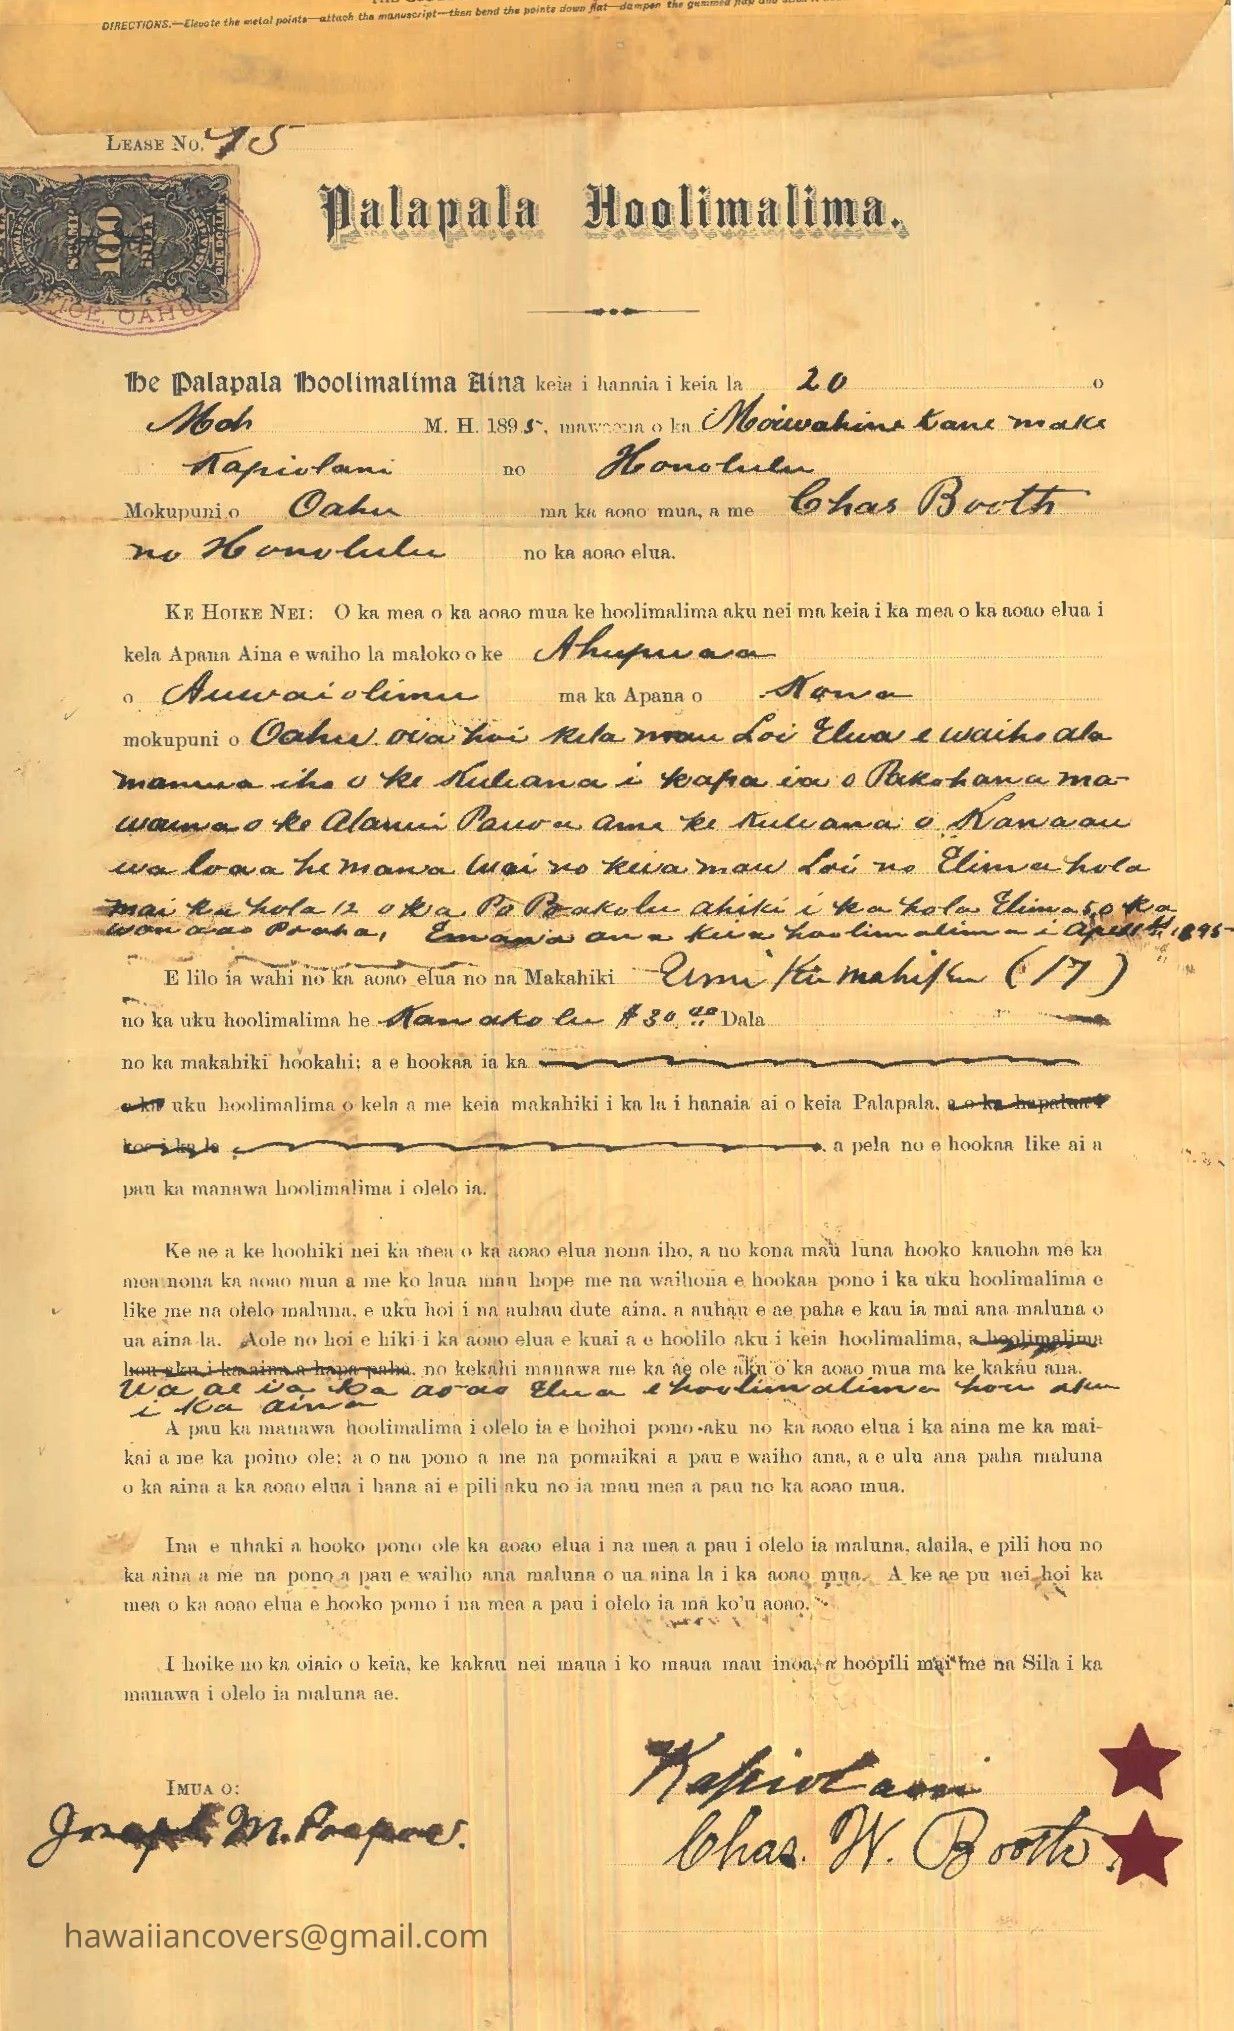 DIRECTIONS.—Elevate the metal points—attach the manuscript—then bend the points down flat—dampen the gummed flap and
LEASE No. 15
STAMP 100 DUTY
ONE DOLLAR
OFFICE, OAHU
Palapala Hoolimalima.
He Palapala Hoolimalima Aina keia i hanaia i keia la 20 o
Mch M. H. 1895, mawaena o ka Moiwahine kane make
Kapiolani no Honolulu
Mokupuni o Oahu ma ka aoao mua, a me Chas Booth
no Honolulu no ka aoao elua.
KE HOIKE NEI: O ka mea o ka aoao mua ke hoolimalima aku nei ma keia i ka mea o ka aoao elua i
kela Apana Aina e waiho la maloko o ke Ahupuaa
o Auwaiolimu ma ka Apana o Kona
mokupuni o Oahu. oia hoi kela mau Loi Elua e waiho ala
mamua iho o ke Kuleana i kapa ia o Pakohana ma-
waena o ke Alanui Pauoa ame ke Kuleana o Kanaau
ua loaa he manawa wai no keia mau Loi no Elima hola
mai ka hola 12 o ka Po Poakolu ahiki i ka hola Elima o ka
wanaao Poaha, E mana ana keia hoolimalima i April 1st 1895
E lilo ia wahi no ka aoao elua no na Makahiki Umi Kumahiku (17)
no ka uku hoolimalima he Kanakolu $30.00 Dala
no ka makahiki hookahi; a e hookaa ia ka
o ka uku hoolimalima o kela a me keia makahiki i ka la i hanaia ai o keia Palapala, a o ka hapalua i
koe i ka la a pela no e hookaa like ai a
pau ka manawa hoolimalima i olelo ia.
Ke ae a ke hoohiki nei ka mea o ka aoao elua nona iho, a no kona mau luna hooko kauoha me ka
mea nona ka aoao mua a me ko laua mau hope me na waihona e hookaa pono i ka uku hoolimalima e
like me na olelo maluna, e uku hoi i na auhau dute aina, a auhau e ae paha e kau ia mai ana maluna o
ua aina la. Aole no hoi e hiki i ka aoao elua e kuai a e hoolilo aku i keia hoolimalima, a hoolimalima
hou aku i ka aina a hapa paha, no kekahi manawa me ka ae ole aku o ka aoao mua ma ke kakau ana.
Ua ae ia ka aoao Elua e hoolimalima hou aku
i ka aina
A pau ka manawa hoolimalima i olelo ia e hoihoi pono aku no ka aoao elua i ka aina me ka mai-
kai a me ka poino ole; a o na pono a me na pomaikai a pau e waiho ana, a e ulu ana paha maluna
o ka aina a ka aoao elua i hana ai e pili aku no ia mau mea a pau no ka aoao mua.
Ina e uhaki a hooko pono ole ka aoao elua i na mea a pau i olelo ia maluna, alaila, e pili hou no
ka aina a me na pono a pau e waiho ana maluna o ua aina la i ka aoao mua. A ke ae pu nei hoi ka
mea o ka aoao elua e hooko pono i na mea a pau i olelo ia ma ko'u aoao.
I hoike no ka oiaio o keia, ke kakau nei maua i ko maua mau inoa, a hoopili mai me na Sila i ka
manawa i olelo ia maluna ae.
Kapiolani
IMUA O:
Joseph M. Poepoe.
Chas. W. Booth.
hawaiiancovers@gmail.com